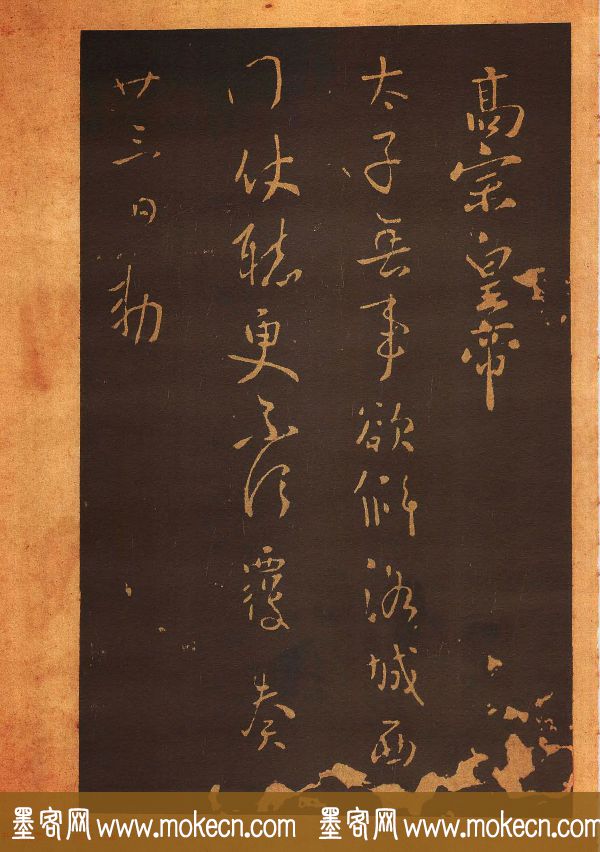 高宗皇帝
太子無事欲解洛城西
門仗聽更不須覆奏
廿三日勅
墨客网 www.mokecn.com 墨客网 www.mokecn.com